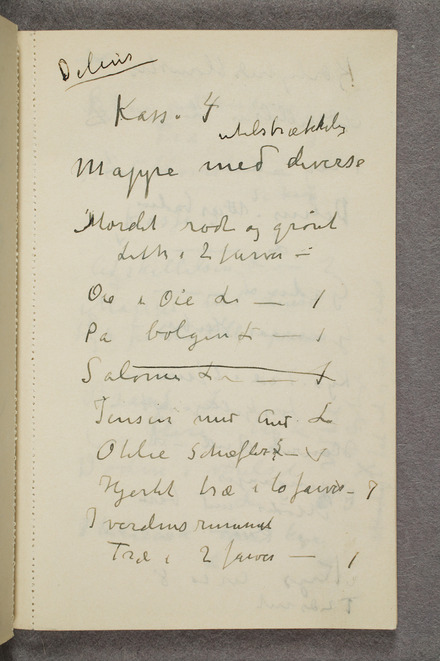 Delius
Kass. 4
utilstrækkelig
Mappe med diverse
Mordet rødt og grønt
Lith i 2 farver —
Øie i Øie L. — 1
Pa bølgen L — 1
Salome L — 1
Jensen med And L
Ottilie Schiefler L —
Hjertet træ i to farver — 7
I verdensrummet
Træ i 2 farver — 1